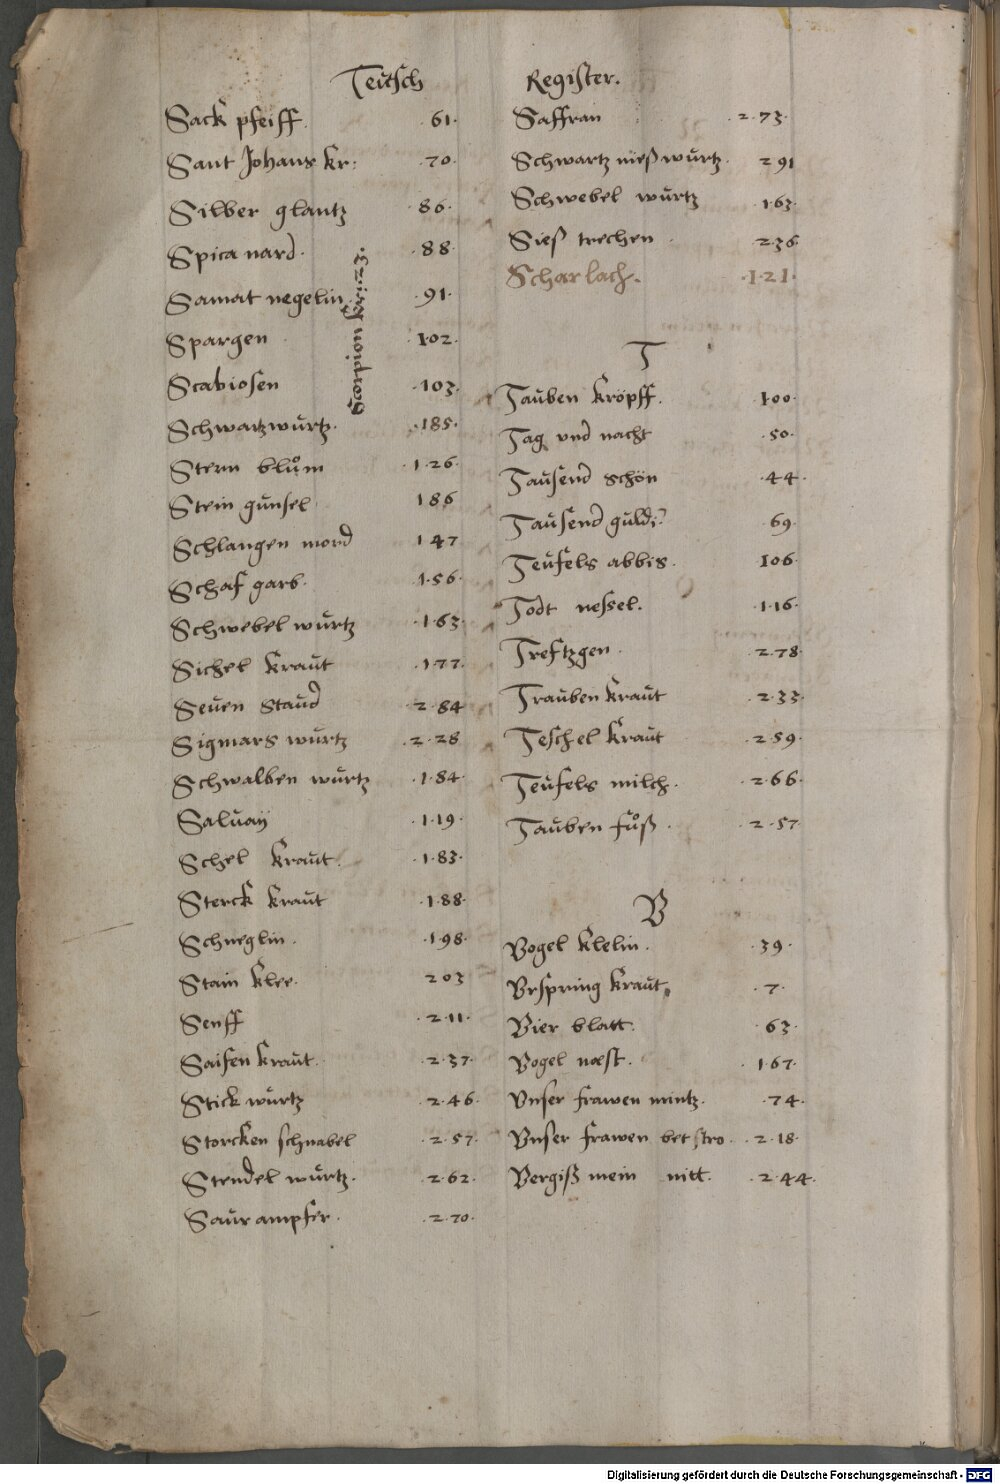 Teütsch Register.
Sack pfeiff. .61.
Sant Johans kr: .70.
Silber glantz .86.
Spica nard. .88.
Samat negelin. .91.
Spargen .102.
Scabiosen .103.
Schwartzwürtz. .185.
Stern blům .126.
Stein günsel 186
Schlangen mord 147
Schaf garb. .156.
Schwebel würtz .163.
Sichel kraüt .177.
Seüen staüd .284
Sigmars würtz .228
Schwalben würtz .184.
Salüaÿ .119.
Schel kraüt. .183.
Sterck kraüt .188.
Schneglin. .198.
Stain klee. 203
Senff .211.
Saifen kraüt. .237.
Stick würtz .246.
Storcken schnabel .257.
Stendel würtz. .262.
Saür ampfer. .270.
Saffran 273.
Schwartz nießwürtz. 291
Schwebel würtz .163.
Sieß trechen. .236
Scharlach. .121.
T
Taüben kröpff. .100.
Tag vnd nacht .50.
Taüsend schön .44.
Taüsend güldi .69.
Teüfels abbis. .106.
Todt nessel. .116.
Treftzgen. .278.
Traüben kraüt .233.
Teschel kraüt .259.
Teüfels milch. .266.
Taüben fůß. .257.
V
Vogel klelin. .39.
Vrspring kraüt. .7.
Vier blatt. .63.
Vogel nœst. .167.
Vnser frawen mintz. .74.
Vnser frawen bet stro. .218.
Vergiß mein nitt. .244.
Digitalisierung gefördert durch die Deutsche Forschungsgemeinschaft - DFG